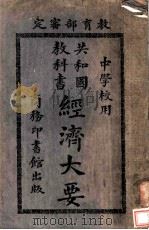 教育部審定
中學校用
共和國
教科書
經濟大要
商務印書館出版